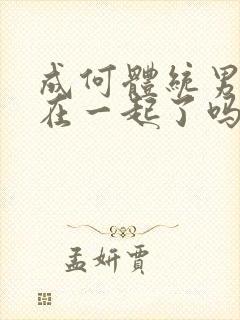 成何體統男
在一起了吗
孟妍賈